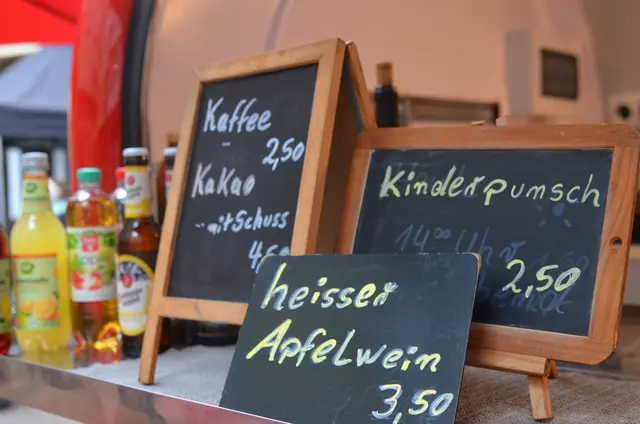 Kaffee
2,50
Kakao
mit Schuss
4,50
Kinderpunsch
14°° Uhr
2,50
heisser
Apfelwein
3,50